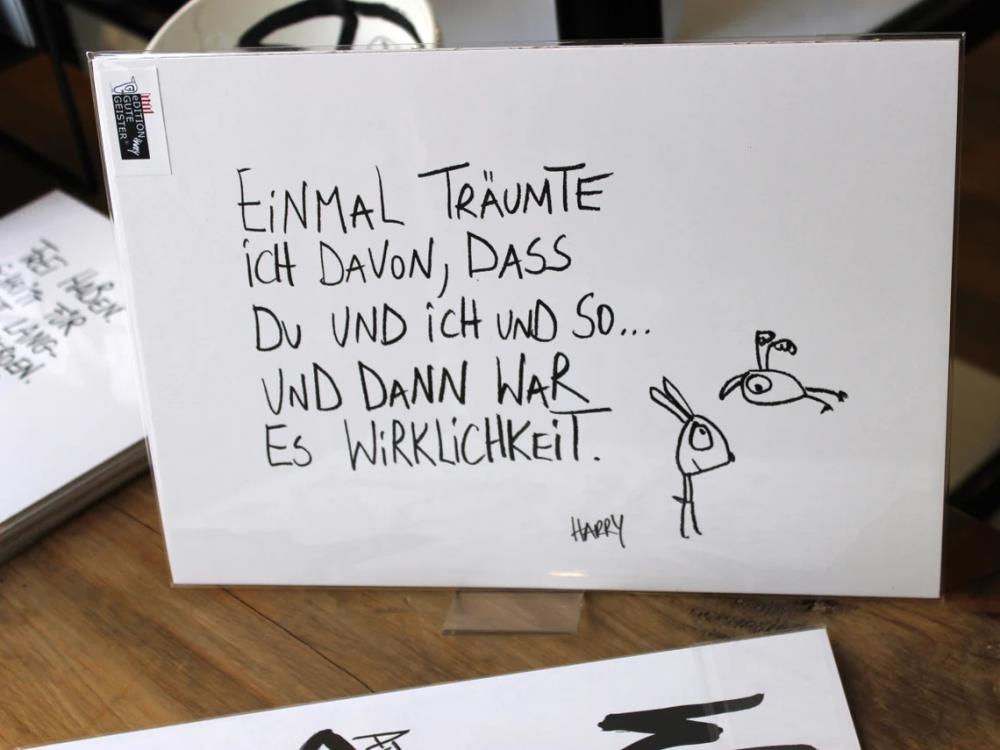 EDITION
GUTE
GEISTER
EINMAL TRÄUMTE
ICH DAVON, DASS
DU UND ICH UND SO...
UND DANN WAR
ES WIRKLICHKEIT.
HARRY